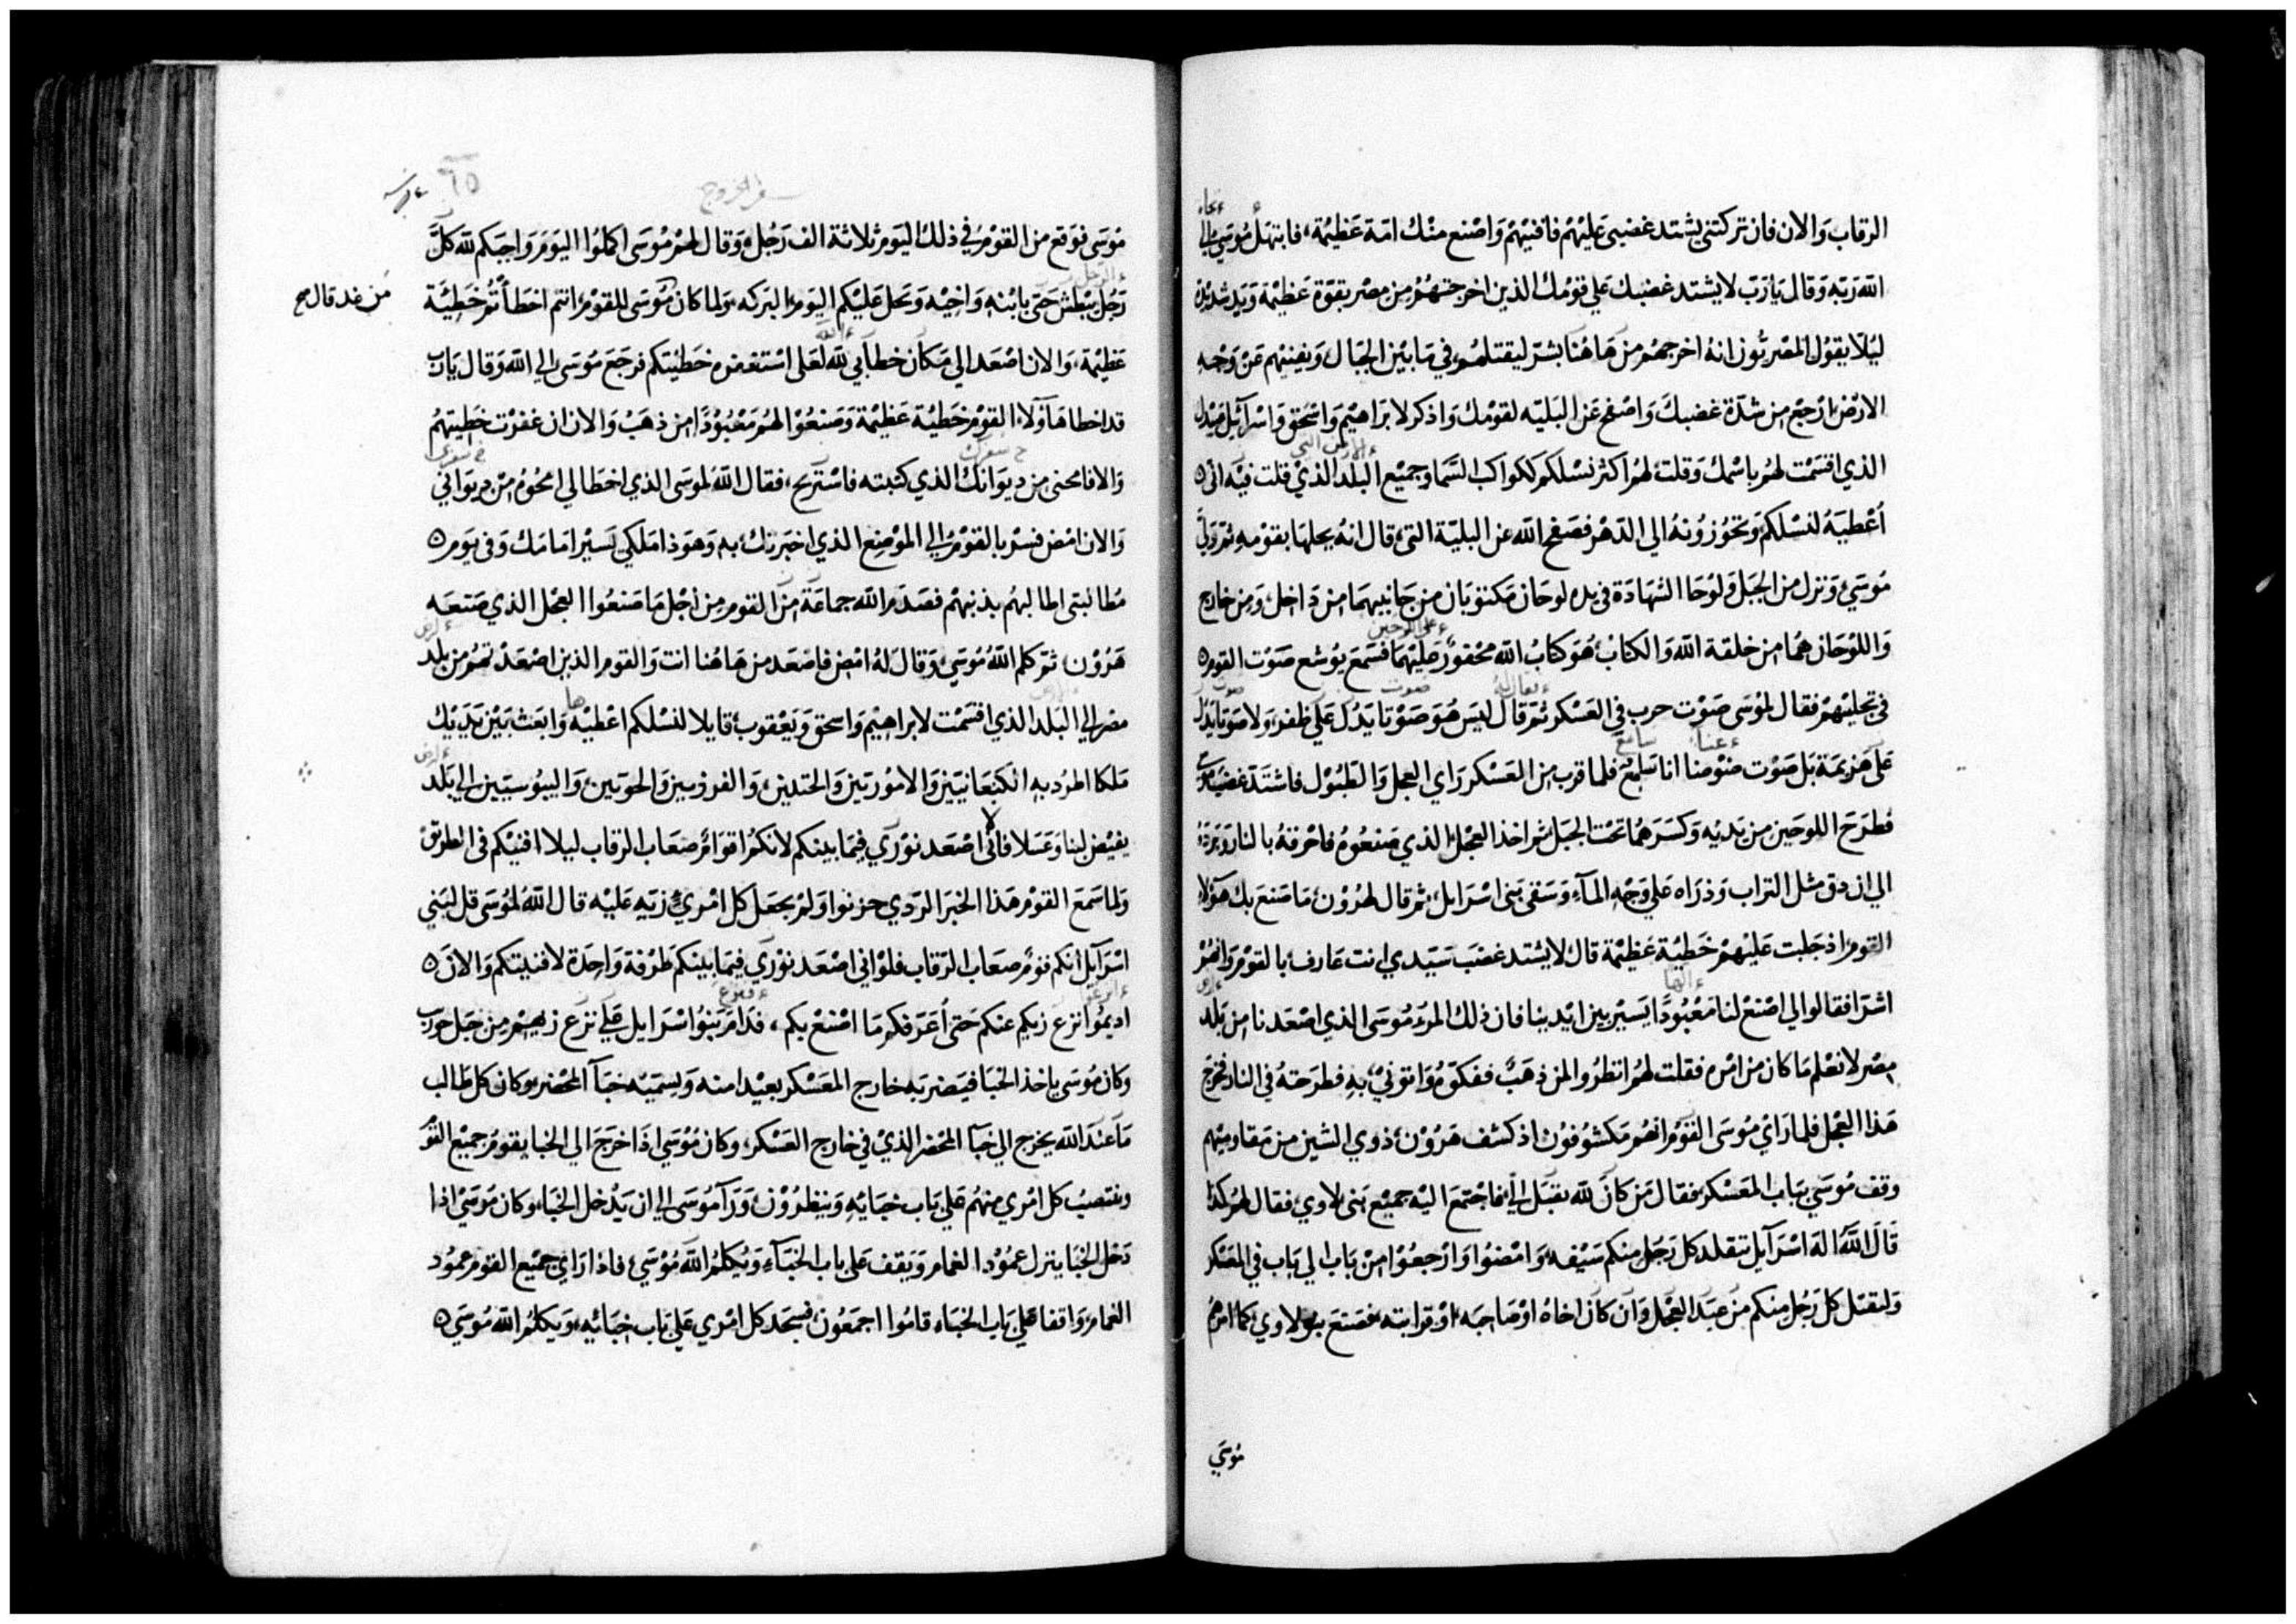 الرقاب والان فان تركتني يشتد غضبي عليهم فافنيهم واصنع منك امة عظيمة، فابتهل موسى الى
الله ربه وقال يا رب لا يشتد غضبك علي قومك الذين اخرجتهم من مصر بقوة عظيمة ويد شديدة
ليلا يقول المصريون انه اخرجهم من هاهنا بشر ليقتلهم في ما بين الجبال ويفنيهم عن وجه
الارض ارجع من شدة غضبك واصفح عن البليه لقومك واذكر لابراهيم واسحق واسرائيل عبيدك
الذي اقسمت لهم باسمك وقلت لهم اكثر نسلكم ككواكب السما وجميع البلد الذي قلت فيه اني
أعطيه لنسلكم وتحوزونه الى الدهر فصفح الله عن البلية التي قال انه يحلها بقومه ثم ولى
موسى ونزل من الجبل ولوحا الشهادة في يده لوحان مكتوبان من جانبيهما من داخل ومن خارج
واللوحان هما من خلقة الله والكتاب هو كتاب الله محفور عليهما فسمع يوشع صوت القوم
في تجليتهم فقال لموسى صوت حرب في العسكر ثم قال ليس هو صوتا يدل علي ظفر ولا صوتا يدل
على هزيمة بل صوت ضوضا انا سامع فلما قرب من العسكر راى العجل والطبول فاشتد غضب موسى
فطرح اللوحين من يديه وكسرهما تحت الجبل ثم اخذ العجل الذي صنعوه فاحرقه بالنار وبرده
الي ان دق مثل التراب وذراه علي وجه المآء وسقى بني اسرايل، ثم قال لهرون ما صنع بك هؤلا
القوم اذ جلبت عليهم خطية عظيمة قال لا يشتد غضب سيدي انت عارف بالقوم وانهم
اشرا فقالوا لي اصنع لنا معبودا يسير بين ايدينا فان ذلك المرء موسى الذي اصعدنا من بلد
مصر لا نعلم ما كان من امره فقلت لهم انظروا لمن ذهب ففكوه واتوني به فطرحته في النار فخرج
هذا العجل فلما راى موسى القوم انهم مكشوفون اذ كشف هرون ذوي الشين من مقاوميهم
وقف موسى بباب المعسكر فقال من كان لله يقبل الي فاجتمع اليه جميع بني لاوي فقال لهم كذا
قال الله اله اسرآيل تقلد كل رجل منكم سيفه وامضوا وارجعوا من باب الي باب في المعسكر
وليقتل كل رجل منكم من عبد العجل وان كان اخاه او صاحبه او قرابته فصنع بنو لاوي كما امرهم
موسى
في الخروج
٦٥
موسى فوقع من القوم في ذلك اليوم ثلاثة الف رجل وقال لهم موسى اكملوا اليوم واجبكم لله كل
رجل يبطش حتى بابنه واخيه وتحل عليكم اليوم البركه ولما كان موسى للقوم انتم اخطاتم خطية
من غد قال صح
عظيمة، والان اصعد الي مكان خطابي لله لعلى استغفر خطيتكم فرجع موسى الي الله وقال يا رب
قد اخطا هاولا القوم خطية عظيمة وصنعوا لهم معبودا من ذهب والان ان غفرت خطيتهم
والا فامحني من ديوانك الذي كتبته فاستريح، فقال الله لموسى الذي اخطا لي امحوه من ديواني
والان امض فسر بالقوم الي الموضع الذي اخبرتك به وهوذا ملكي يسير امامك وفي يوم
مطالبتي اطالبهم بذنبهم فصدم الله جماعة من القوم من اجل ما صنعوا العجل الذي صنعه
هرون ثم كلم الله موسى وقال له امض فاصعد من هاهنا انت والقوم الذين اصعدتهم من بلد
مصر الي البلد الذي اقسمت لابراهيم واسحق ويعقوب قايلا لنسلكم اعطيه وابعث بين يديك
ملكا اطرد به الكنعانيين والامورتين والحتيين والفرزيين والحويين واليبوسيين الي بلد
يفيض لبنا وعسلا فاني لا اصعد نوري فيما بينكم لانكم اقوام صعاب الرقاب ليلا افنيكم في الطريق
ولما سمع القوم هذا الخبر الردي حزنوا ولم يجعل كل امري زيه عليه قال الله لموسى قل لبني
اسرآيل انكم قوم صعاب الرقاب فلو اني اصعد نوري فيما بينكم طرفة واحدة لافنيتكم والان
اديموا نزع زيكم عنكم حتى أعرفكم ما اصنع بكم، فدام بنو اسرايل علي نزع زيهم من جبل حوريب
وكان موسى ياخذ الخبا فيضربه خارج المعسكر بعيدا منه ويسميه خبآ المحضر وكان كل طالب
ما عند الله يخرج الي خبآ المحضر الذي في خارج العسكر، وكان موسى اذا خرج الي الخبا يقوم جميع القوم
وينتصب كل امري منهم علي باب خبايه وينظرون ورآ موسى الي ان يدخل الخباء وكان موسى اذا
دخل الخبا ينزل عمود الغمام ويقف على باب الخبآء ويكلم الله موسى، فاذا راى جميع القوم عمود
الغمام واقفا على باب الخباء قاموا اجمعون فسجد كل امري على باب خبائه، ويكلم الله موسى